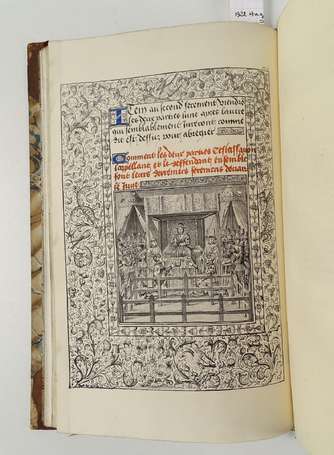 ITEM au second serement viendrõ
les deux parties lune apres lautre
qui semblablement jureront comme
dit est dessus pour abregier
Comment les deux parties Cestassavoir
lappellant et le deffendant ensemble
font leurs derreniers seremens devant
le Juge